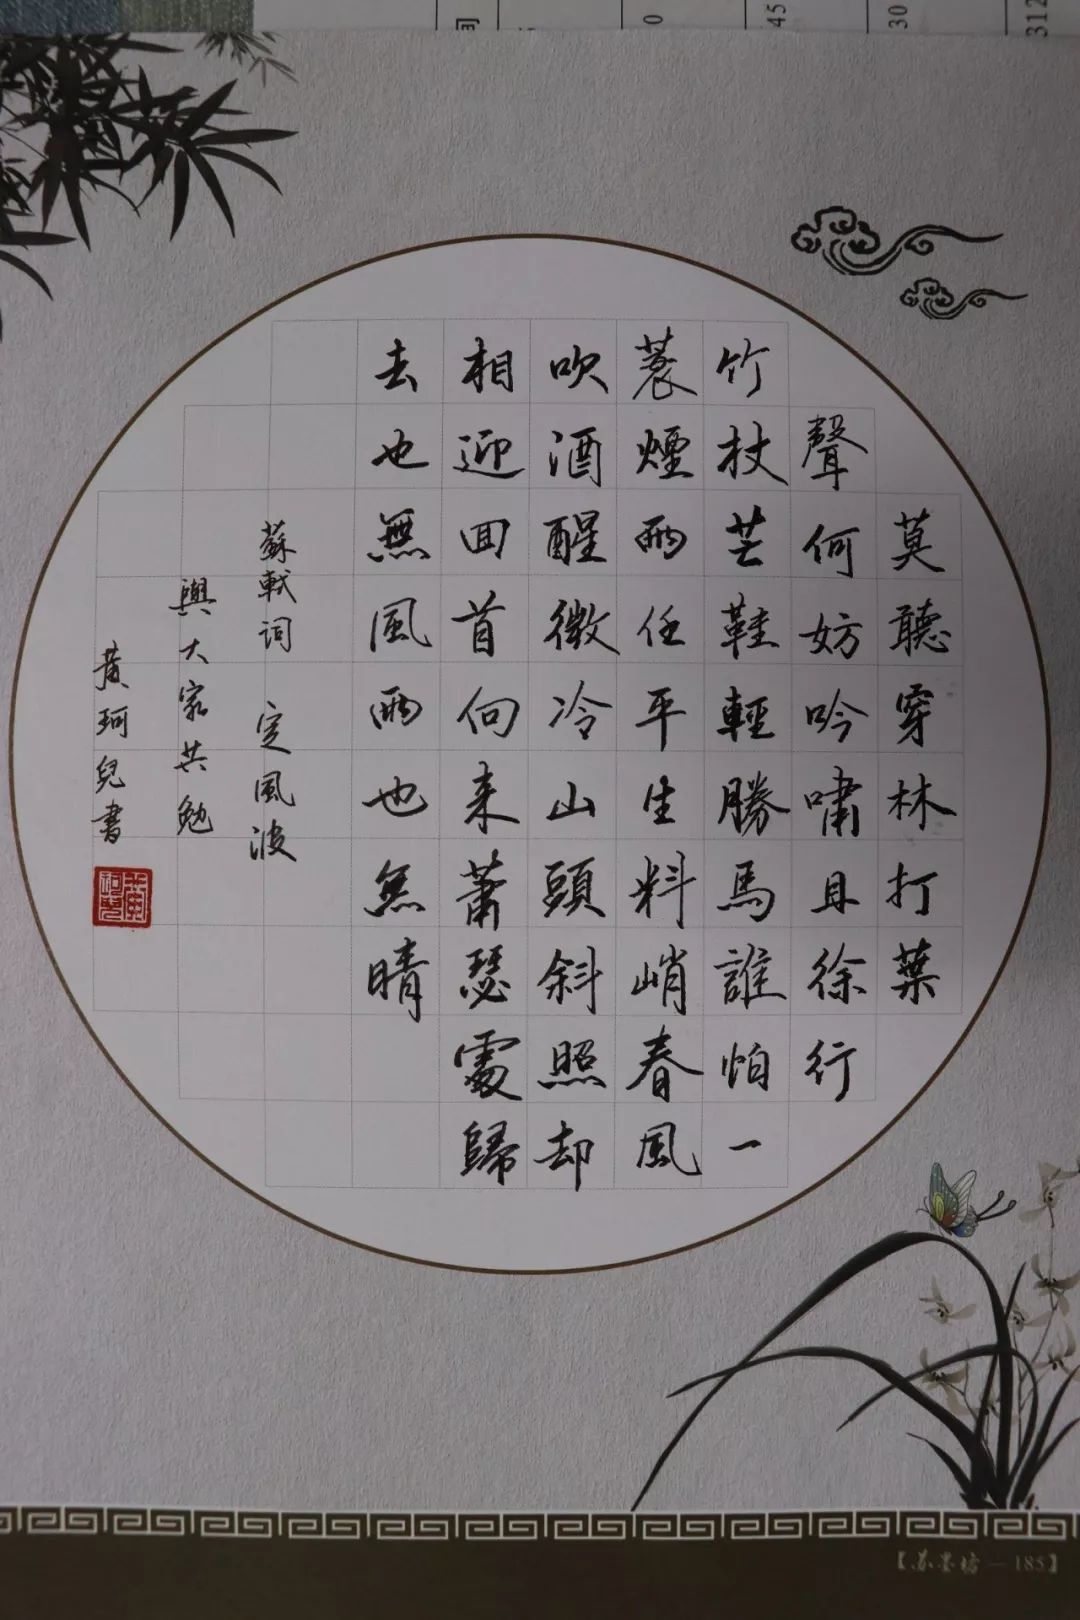 莫聽穿林打葉
聲何妨吟嘯且徐行
竹杖芒鞋輕勝馬誰怕一
蓑煙雨任平生料峭春風
吹酒醒微冷山頭斜照却
相迎回首向来蕭瑟處歸
去也無風雨也無晴
蘇軾词 定風波
與大家共勉
黄珂兒書
【苏墨坊—185】
间
0
45
30
312